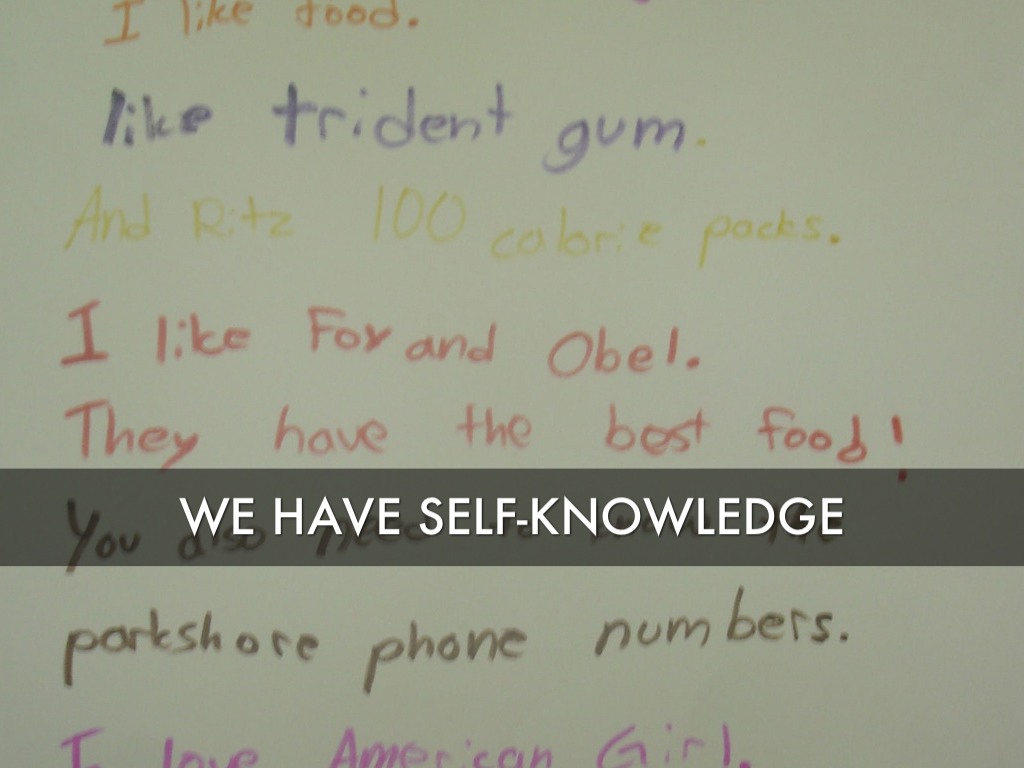 I like food.
like trident gum.
And Ritz 100 calorie packs.
I like Fox and Obel.
They have the best food!
WE HAVE SELF-KNOWLEDGE
You also need
parkshore phone numbers.
I love American Girl.